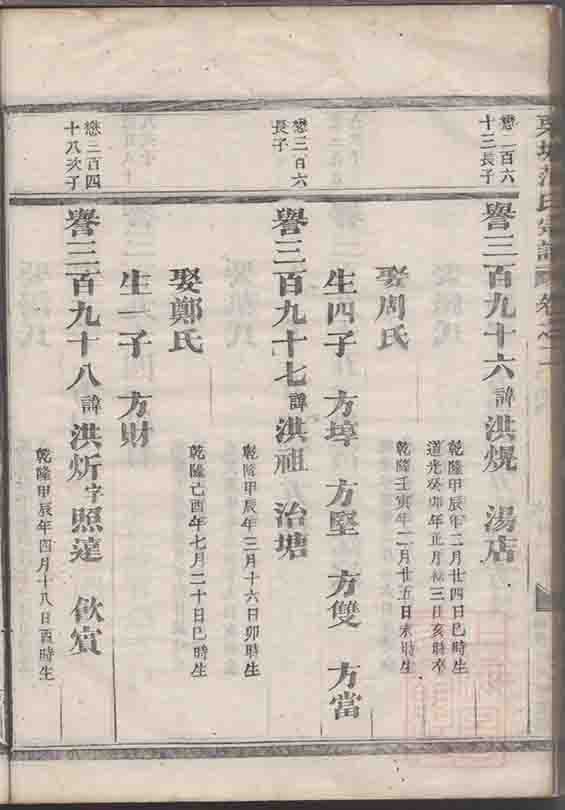 氏宗譜 卷之二
懋二百六
十三長子
譽三百九十六 諱洪熀 湯店
乾隆甲辰年二月廿四日巳時生
道光癸卯年正月初三日亥時卒
娶周氏
乾隆壬寅年二月廿五日未時生
生四子 方埻 方堅 方雙 方當
懋三百六
長子
譽三百九十七 諱洪祖 治塘
乾隆甲辰年三月十六日卯時生
娶鄭氏
乾隆己酉年七月二十日巳時生
生一子 方財
懋三百四
十八次子
譽三百九十八 諱洪炘 字照達 飲賓
乾隆甲辰年四月十八日酉時生